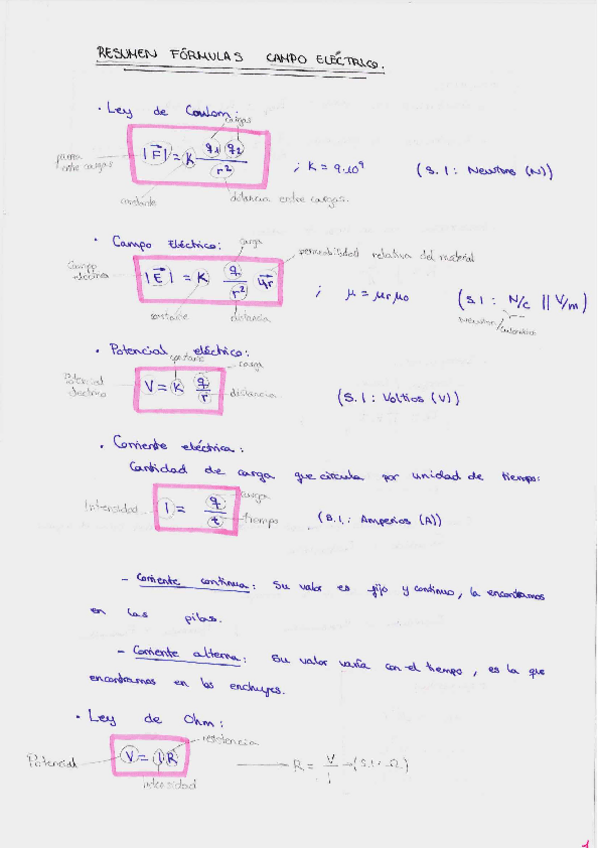 RESUMEN FÓRMULAS CAMPO ELÉCTRICO.
· Ley de Coulom:
cargas
|F⃗| = K q1 q2 / r² ; K = 9·10⁹ (S.I: Newtons (N))
fuerza entre cargas
constante
distancia entre cargas.
· Campo Eléctrico:
carga
permeabilidad relativa del material
Campo eléctrico
|E⃗| = K q / r² u⃗r ; μ = μr μ0 (S.I: N/c || V/m)
constante
distancia
Newton/culombio
· Potencial eléctrico:
constante
carga
Potencial eléctrico
V = K q / r
distancia
(S.I: Voltios (V))
· Corriente eléctrica:
Cantidad de carga que circula por unidad de tiempo:
Intensidad
I = q / t
carga
tiempo
(S.I.: Amperios (A))
- Corriente continua: Su valor es fijo y continuo, la encontramos
en las pilas.
- Corriente alterna: Su valor varía con el tiempo, es la que
encontramos en los enchufes.
· Ley de Ohm:
resistencia
Potencial
V = I·R
R = V / I → (S.I: Ω)
Intensidad
1